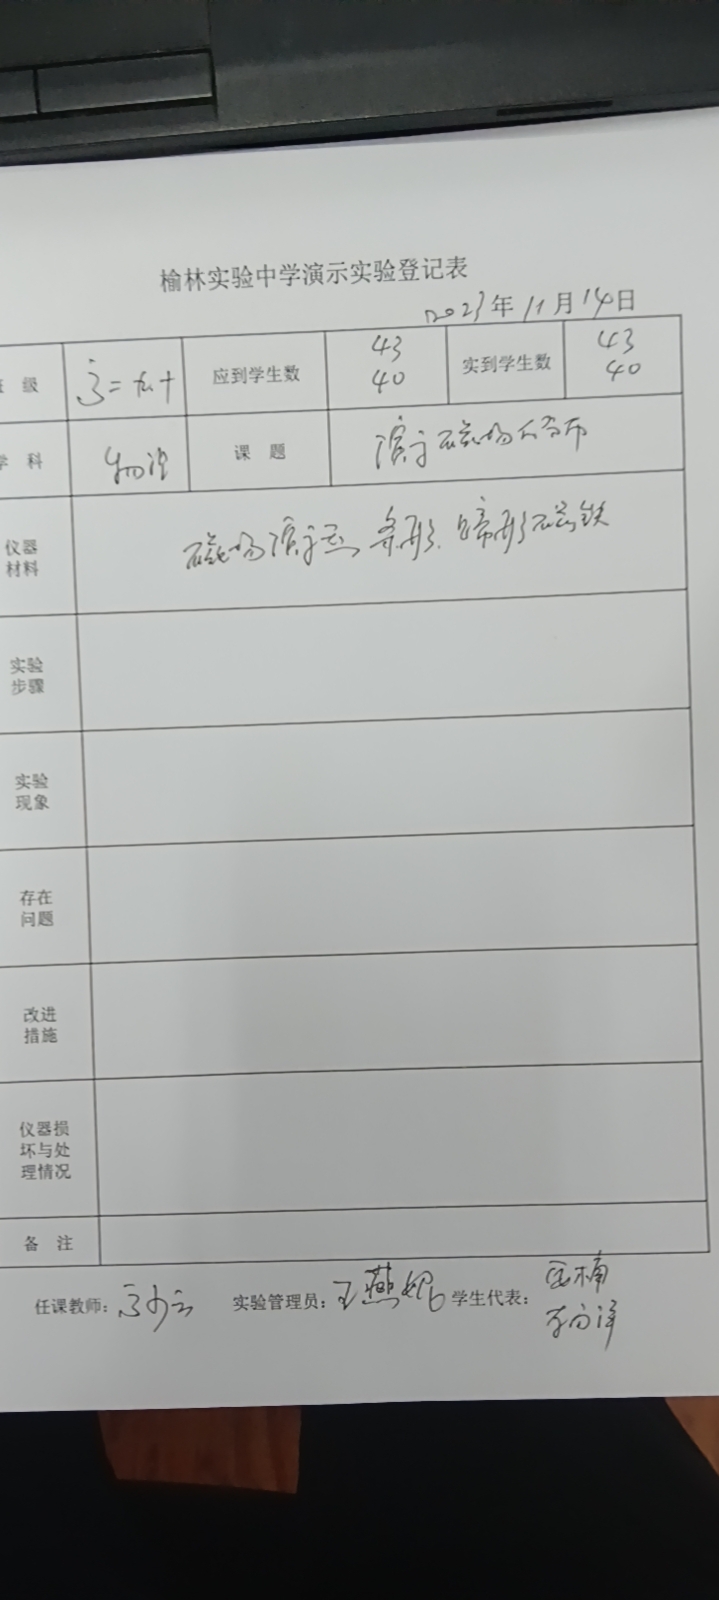 榆林实验中学演示实验登记表
2023年11月14日
级 高二 九 十 应到学生数 43 40 实到学生数 43 40
科 物理 课题 演示磁场分布
仪器材料 磁场演示器 条形、蹄形磁铁
实验步骤
实验现象
存在问题
改进措施
仪器损坏与处理情况
备注
任课教师: 实验管理员: 王燕妮 学生代表: